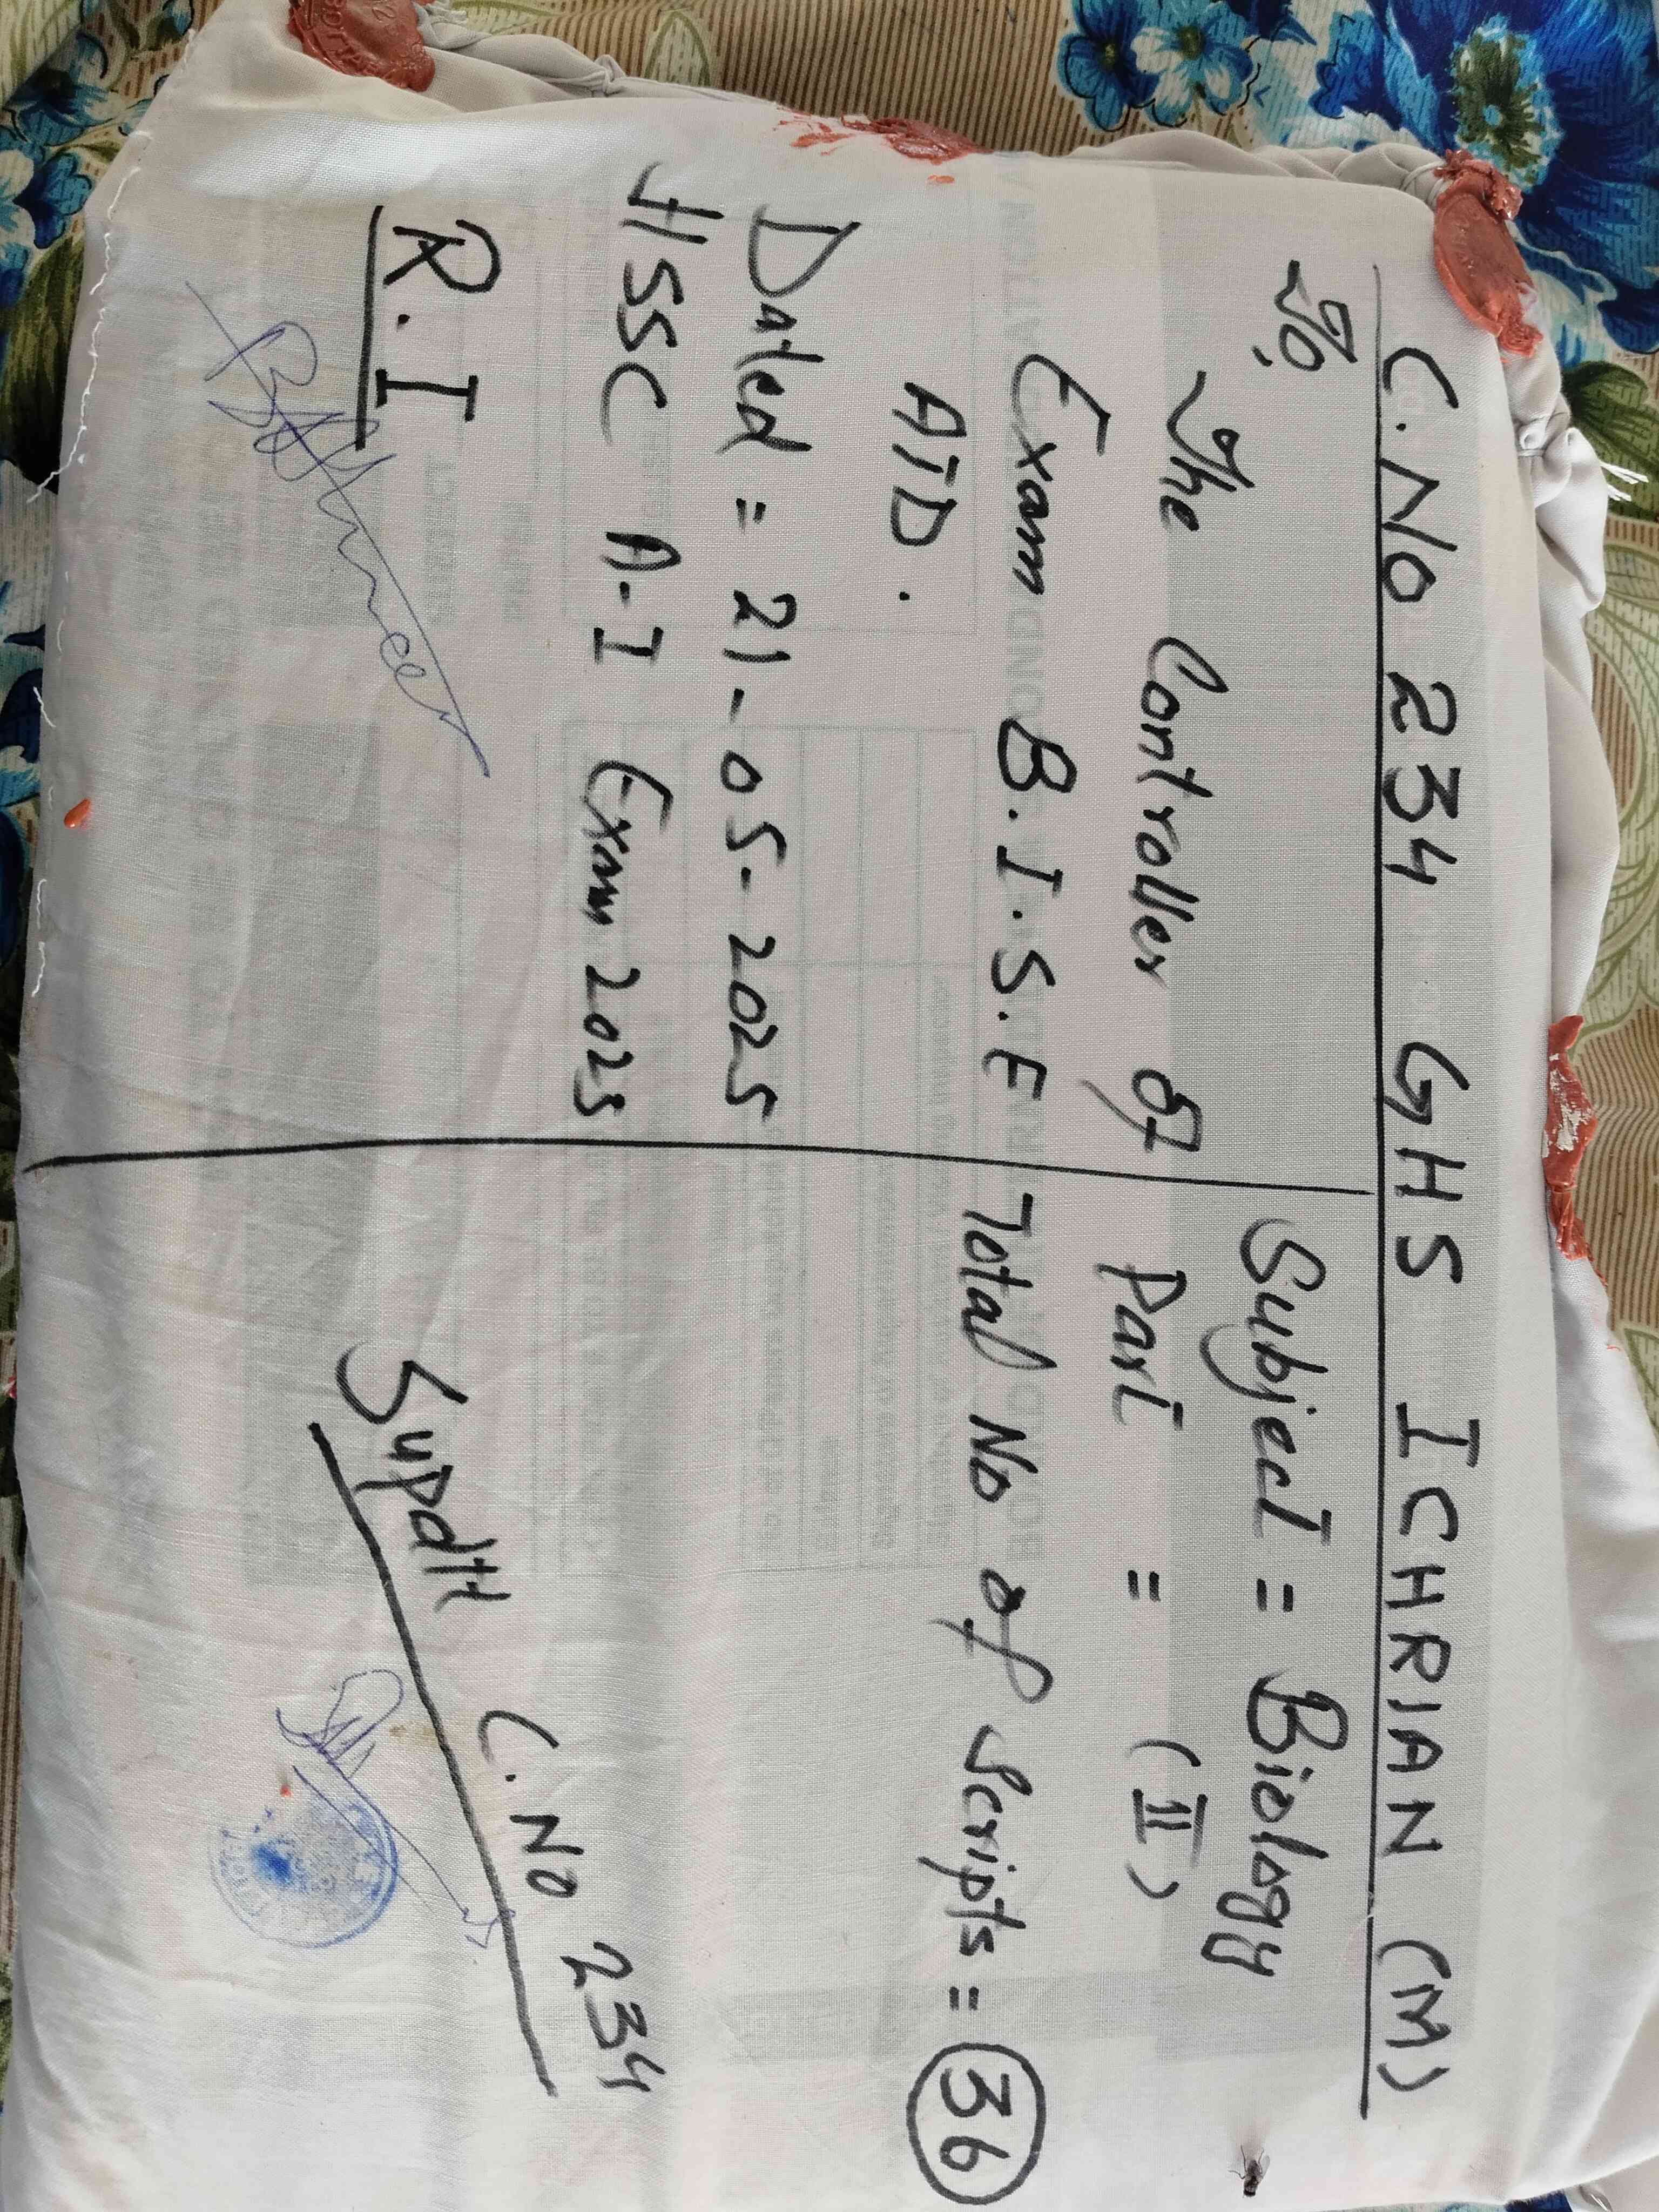 C.No 234 GHS ICHRIAN (M)
To,
The Controller of
Exam B.I.S.E
ATD.
Dated = 21-05-2025
HSSC A-I Exam 2025
R.I
Subject = Biology
Part = (II)
Total No of Scripts = 36
Supdtt
C.No 234